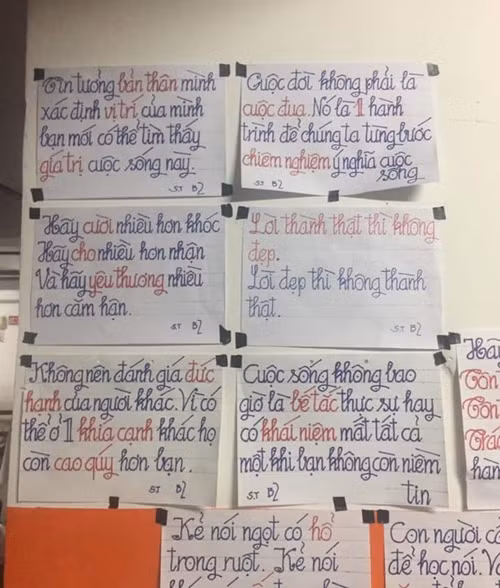 Tin tưởng bản thân mình
xác định vị trí của mình
bạn mới có thể tìm thấy
giá trị cuộc sống này.
ST BZ
Cuộc đời không phải là
cuộc đua. Nó là 1 hành
trình để chúng ta từng bước
chiêm nghiệm ý nghĩa cuộc
sống
ST BZ
Hãy cười nhiều hơn khóc
Hãy cho nhiều hơn nhận
Và hãy yêu thương nhiều
hơn căm hận.
ST BZ
Lời thành thật thì không
đẹp.
Lời đẹp thì không thành
thật.
ST BZ
Không nên đánh giá đức
hạnh của người khác. Vì có
thể ở 1 khía cạnh khác họ
còn cao quý hơn bạn.
ST BZ
Cuộc sống không bao
giờ là bế tắc thực sự hay
có khái niệm mất tất cả
một khi bạn không còn niềm
tin
ST BZ
Kẻ nói ngọt có hổ
trong ruột. Kẻ nói
Con người
để học nói.